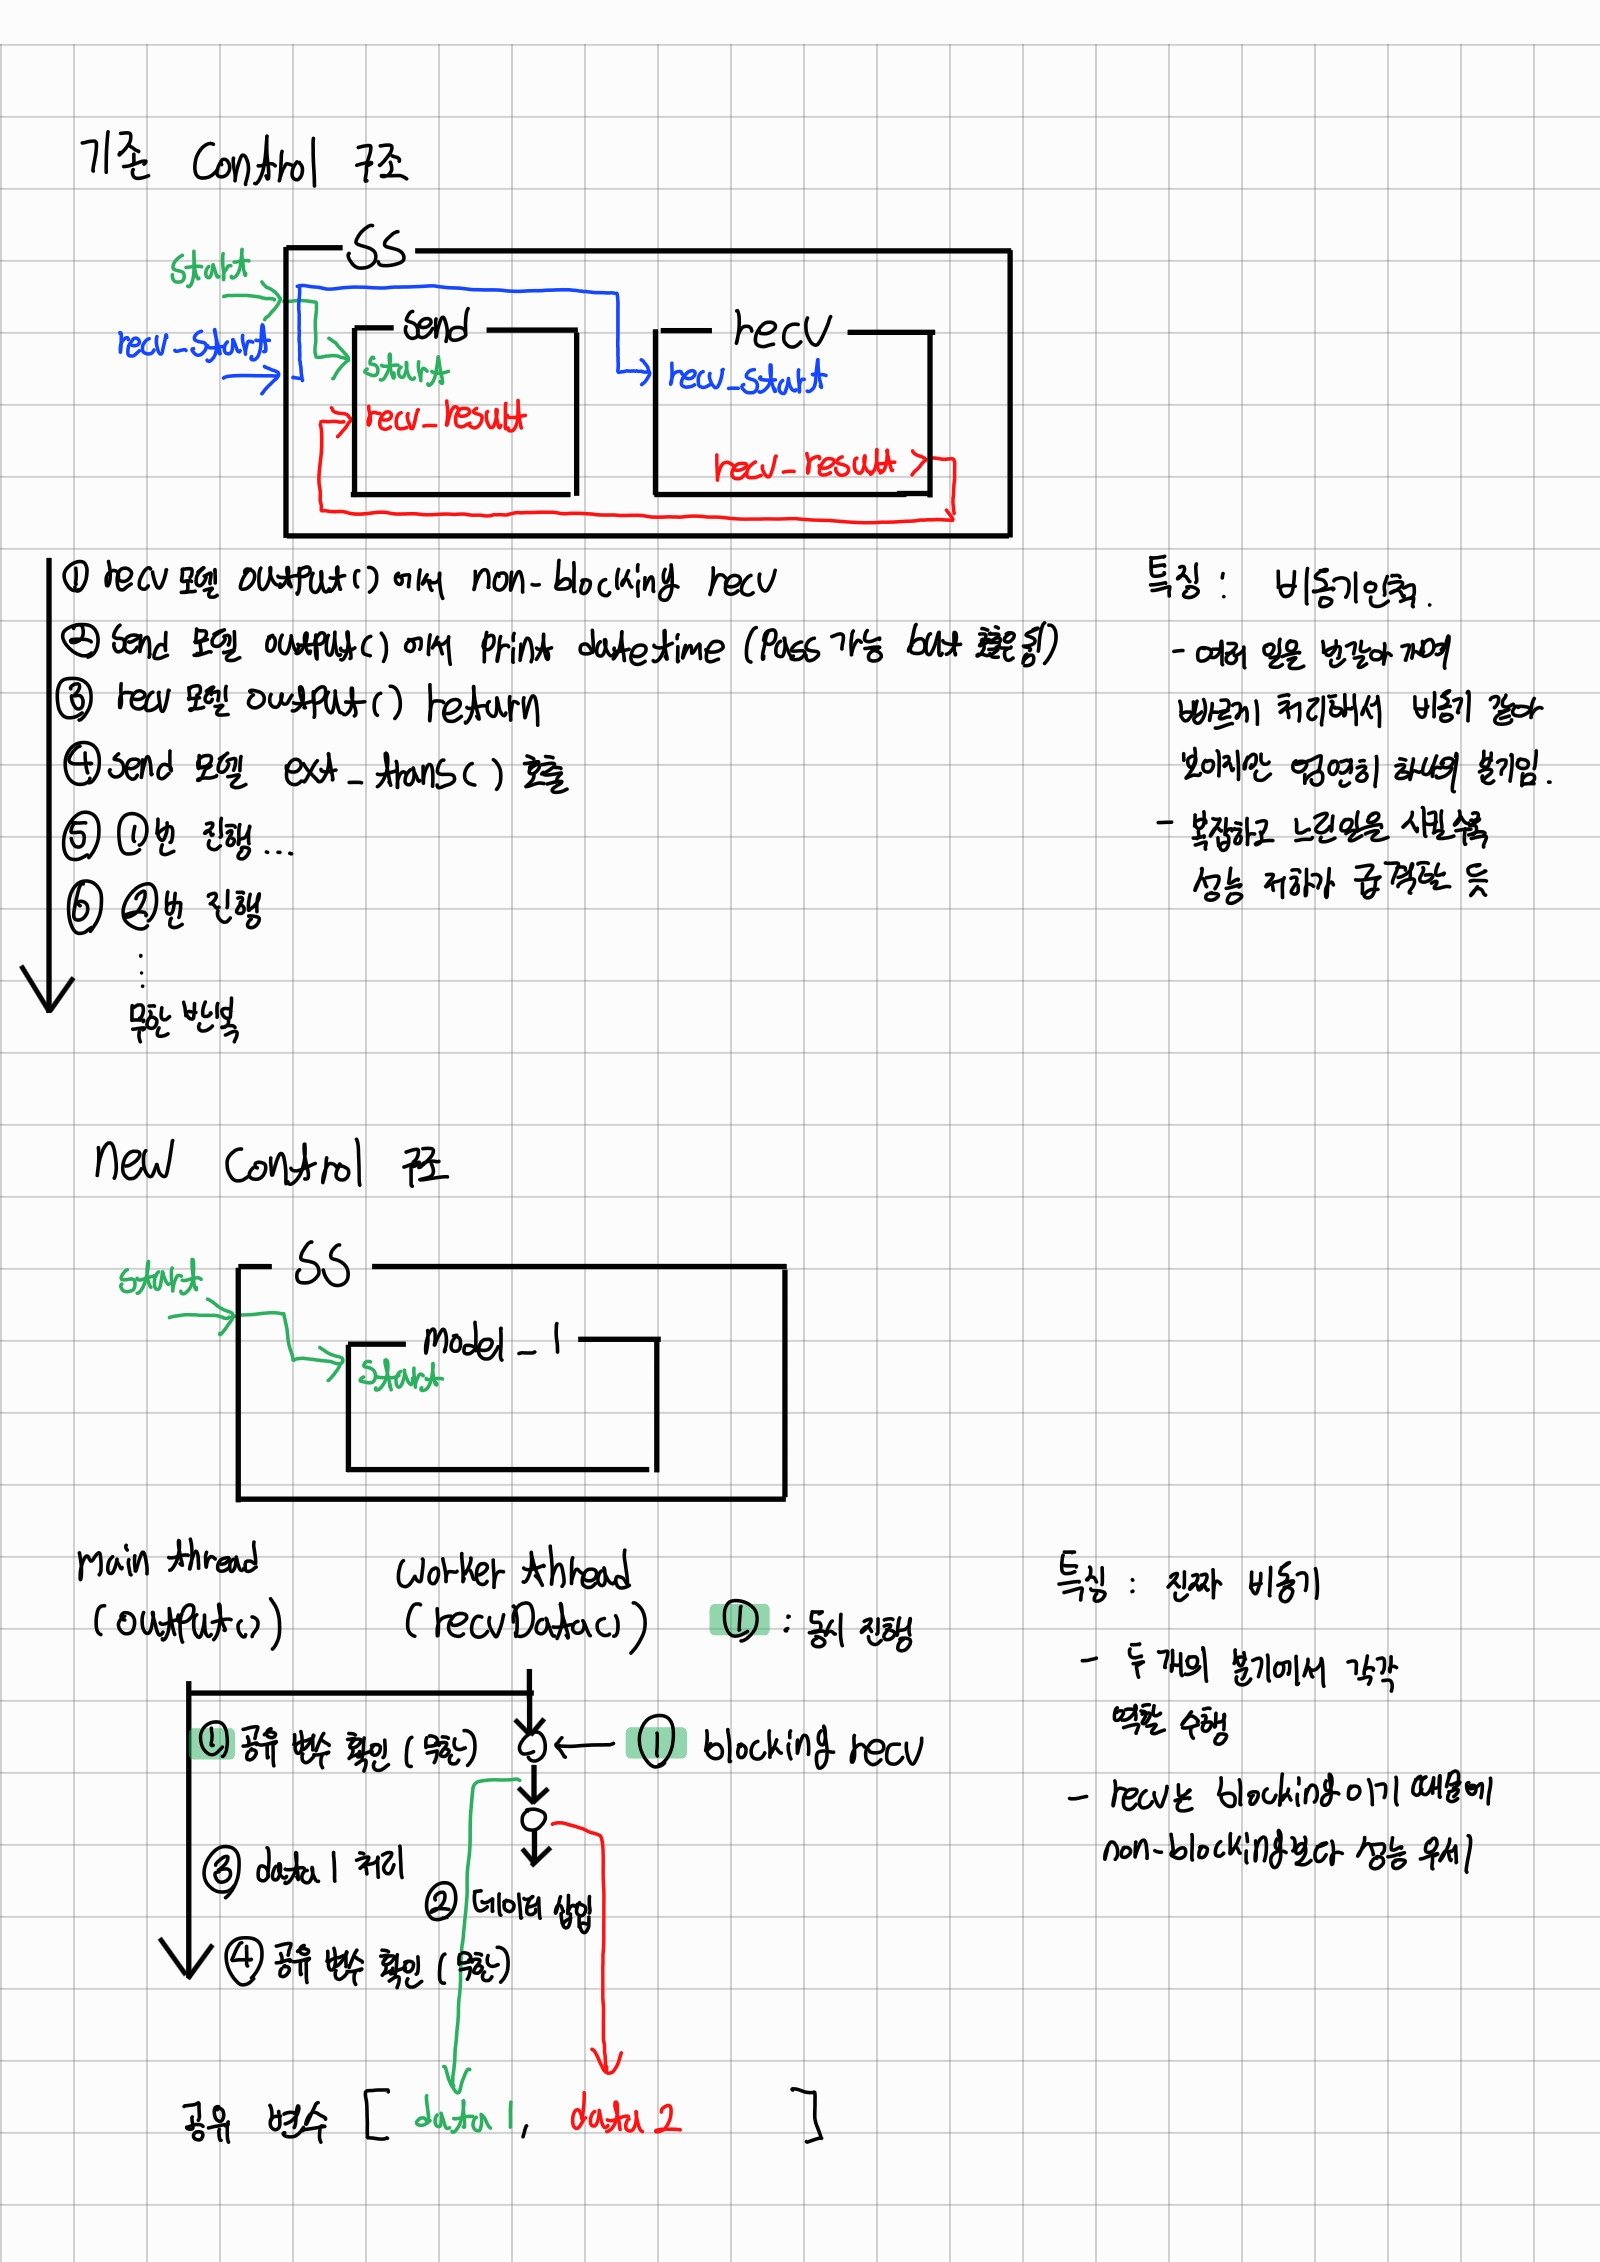 기존 Control 구조
SS
start
recv_start
send
start
recv_result
recv
recv_start
recv_result
① recv 모델 output() 에서 non-blocking recv
② send 모델 output() 에서 print datetime (pass 가능 but 호출은 됨)
③ recv 모델 output() return
④ send 모델 ext_trans() 호출
⑤ ①번 진행 ...
⑥ ②번 진행
⋮
무한 반복
특징 : 비동기인척.
- 여러 일을 번갈아 가며
빠르게 처리해서 비동기 같아
보이지만 엄연히 하나의 분기임.
- 복잡하고 느린일을 시킬수록
성능 저하가 급격할 듯
new Control 구조
SS
start
model_1
start
main thread
(output())
worker thread
(recvData())
① : 동시 진행
① 공유 변수 확인 (무한)
① blocking recv
③ data1 처리
② 데이터 삽입
④ 공유 변수 확인 (무한)
공유 변수 [ data1, data2 ]
특징 : 진짜 비동기
- 두 개의 분기에서 각각
역할 수행
- recv는 blocking이기 때문에
non-blocking보다 성능 우세